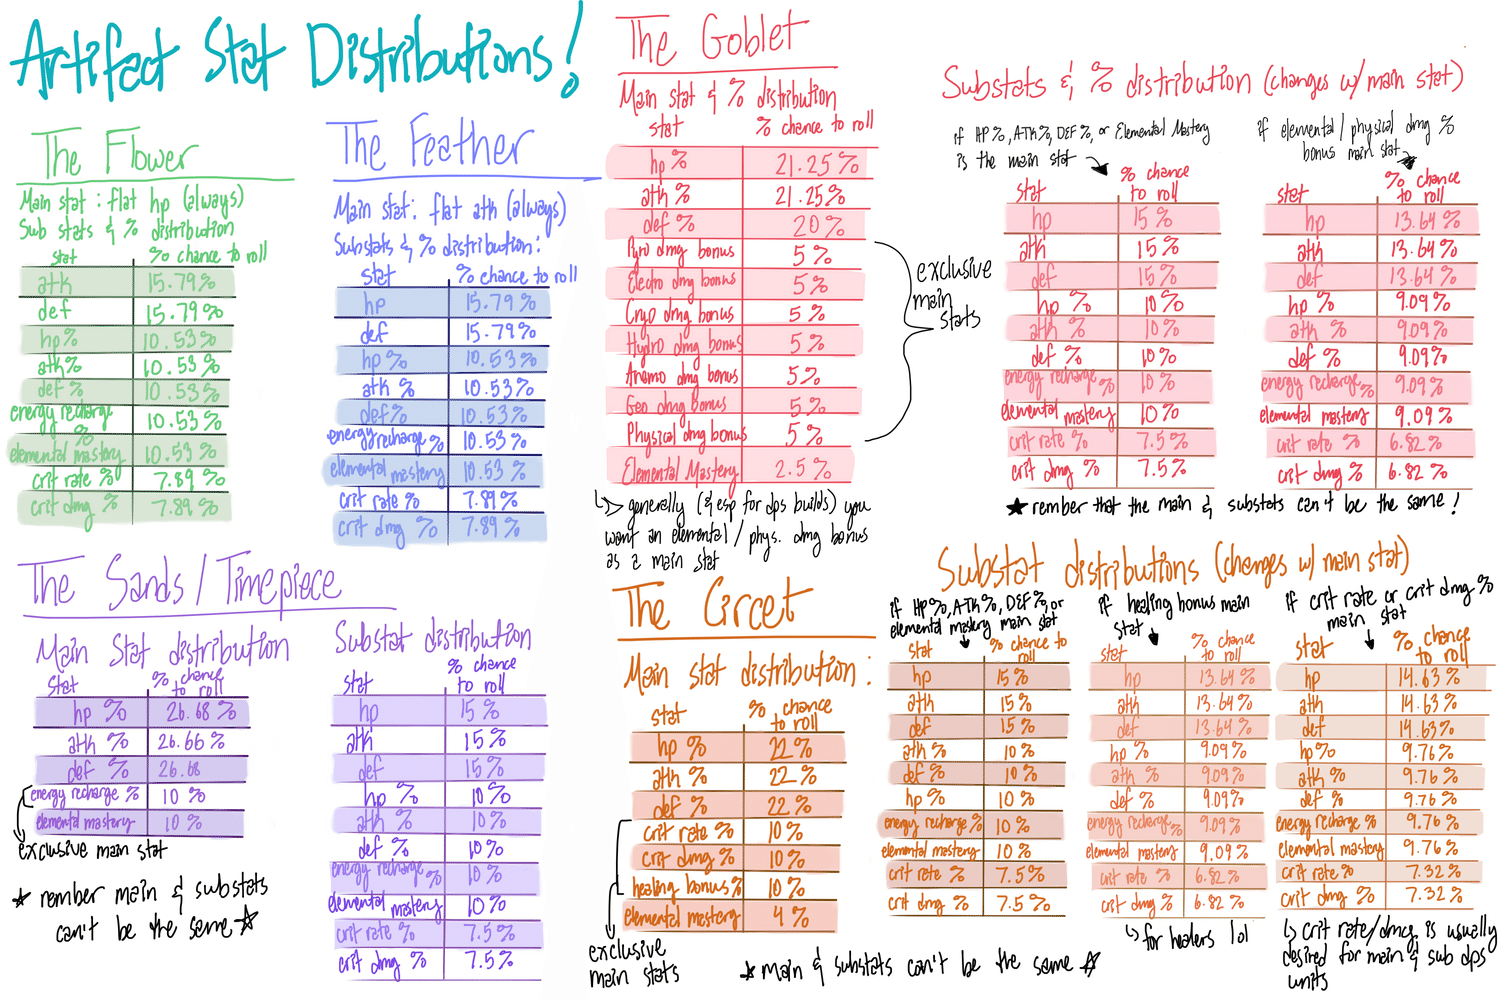 Artifact Stat Distributions!
The Flower
Main stat: flat hp (always)
Sub stats & % distribution
stat % chance to roll
atk 15.79%
def 15.79%
hp% 10.53%
atk% 10.53%
def % 10.53%
energy recharge % 10.53%
elemental mastery 10.53%
crit rate % 7.89%
crit dmg % 7.89%
The Feather
Main stat: flat atk (always)
Substats & % distribution:
stat % chance to roll
hp 15.79%
def 15.79%
hp % 10.53%
atk % 10.53%
def% 10.53%
energy recharge % 10.53%
elemental mastery 10.53%
crit rate % 7.89%
crit dmg % 7.89%
The Sands/Timepiece
Main Stat distribution
stat % chance to roll
hp % 26.68%
atk % 26.66%
def % 26.68
energy recharge % 10%
elemental mastery 10%
exclusive main stat
★ rember main & substats
can't be the same ★
Substat distribution
stat % chance to roll
hp 15%
atk 15%
def 15%
hp % 10%
atk % 10%
def % 10%
energy recharge % 10%
elemental mastery 10%
crit rate % 7.5%
crit dmg % 7.5%
The Goblet
Main stat & % distribution
stat % chance to roll
hp % 21.25%
atk % 21.25%
def % 20%
Pyro dmg bonus 5%
Electro dmg bonus 5%
Cryo dmg bonus 5%
Hydro dmg bonus 5%
Anemo dmg bonus 5%
Geo dmg bonus 5%
Physical dmg bonus 5%
Elemental Mastery 2.5%
exclusive
main
stats
generally (& esp for dps builds) you
want an elemental/phys. dmg bonus
as a main stat
Substats & % distribution (changes w/ main stat)
if HP%, ATK%, DEF%, or Elemental Mastery
is the main stat
stat % chance to roll
hp 15%
atk 15%
def 15%
hp % 10%
atk % 10%
def % 10%
energy recharge % 10%
elemental mastery 10%
crit rate % 7.5%
crit dmg % 7.5%
if elemental/physical dmg %
bonus main stat
stat % chance to roll
hp 13.64%
atk 13.64%
def 13.64%
hp % 9.09%
atk % 9.09%
def % 9.09%
energy recharge % 9.09%
elemental mastery 9.09%
crit rate % 6.82%
crit dmg % 6.82%
★ rember that the main & substats can't be the same!
The Circet
Main stat distribution:
stat % chance to roll
hp % 22%
atk % 22%
def % 22%
crit rate % 10%
crit dmg % 10%
healing bonus% 10%
elemental mastery 4%
exclusive
main stats
Substat distributions (changes w/ main stat)
if HP%, ATK%, DEF%, or
elemental mastery main stat
stat % chance to roll
hp 15%
atk 15%
def 15%
atk % 10%
def % 10%
hp % 10%
energy recharge% 10%
elemental mastery 10%
crit rate % 7.5%
crit dmg % 7.5%
if healing bonus main
stat
stat % chance to roll
hp 13.64%
atk 13.64%
def 13.64%
hp % 9.09%
atk % 9.09%
def % 9.09%
energy recharge % 9.09%
elemental mastery 9.09%
crit rate % 6.82%
crit dmg % 6.82%
for healers lol
if crit rate or crit dmg %
main stat
stat % chance to roll
hp 14.63%
atk 14.63%
def 14.63%
hp% 9.76%
atk % 9.76%
def % 9.76%
energy recharge % 9.76%
elemental mastery 9.76%
crit rate % 7.32%
crit dmg % 7.32%
crit rate/dmg is usually
desired for main & sub dps
units
★ main & substats can't be the same ★